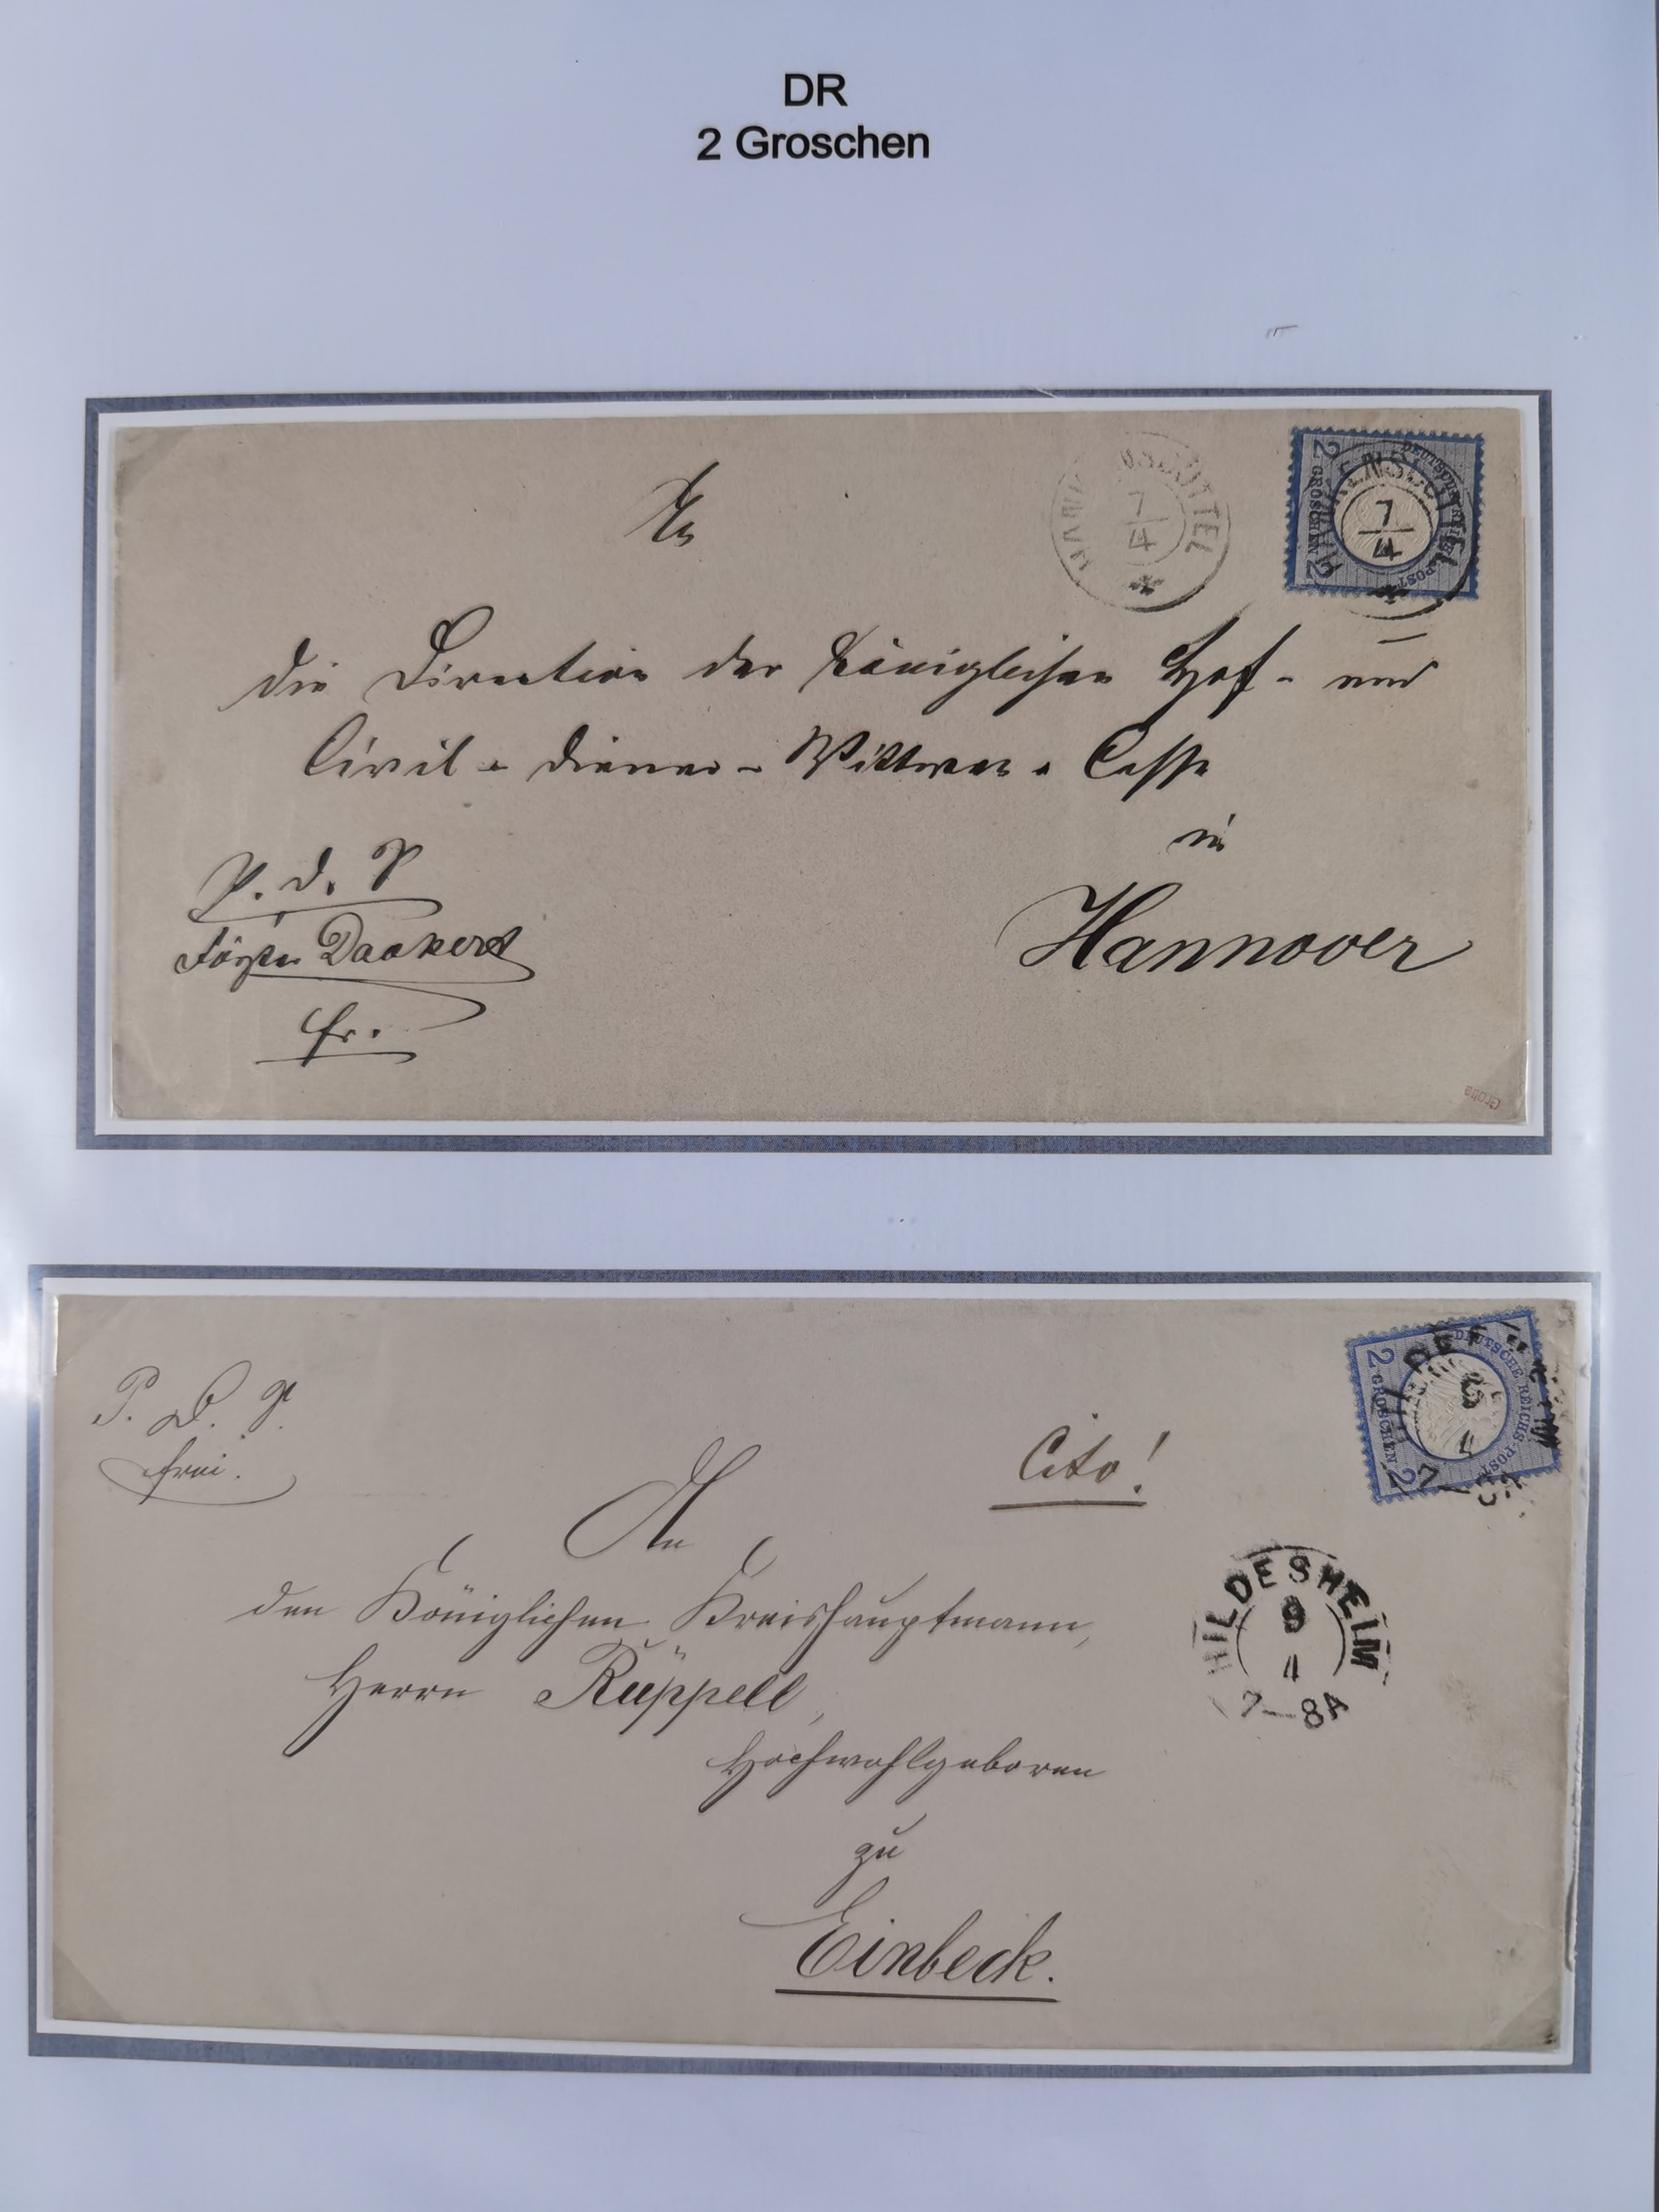 DR
2 Groschen
HARKENSBÜTTEL
7
4
2 GROSCHEN 2
DEUTSCHE REICHS-POST
7
4
An
die Direction der Königlichen Hof- und
Civil-Diener-Wittwen-Casse
in
Hannover
P. d. P
Dankert
fr.
Grobe
2 GROSCHEN 2
DEUTSCHE REICHS-POST
P. D. P.
frei.
Cito!
An
den Königlichen Kreishauptmann,
Herrn Rüppell,
Hochwohlgeboren
zu
Einbeck.
HILDESHEIM
9
4
7-8A